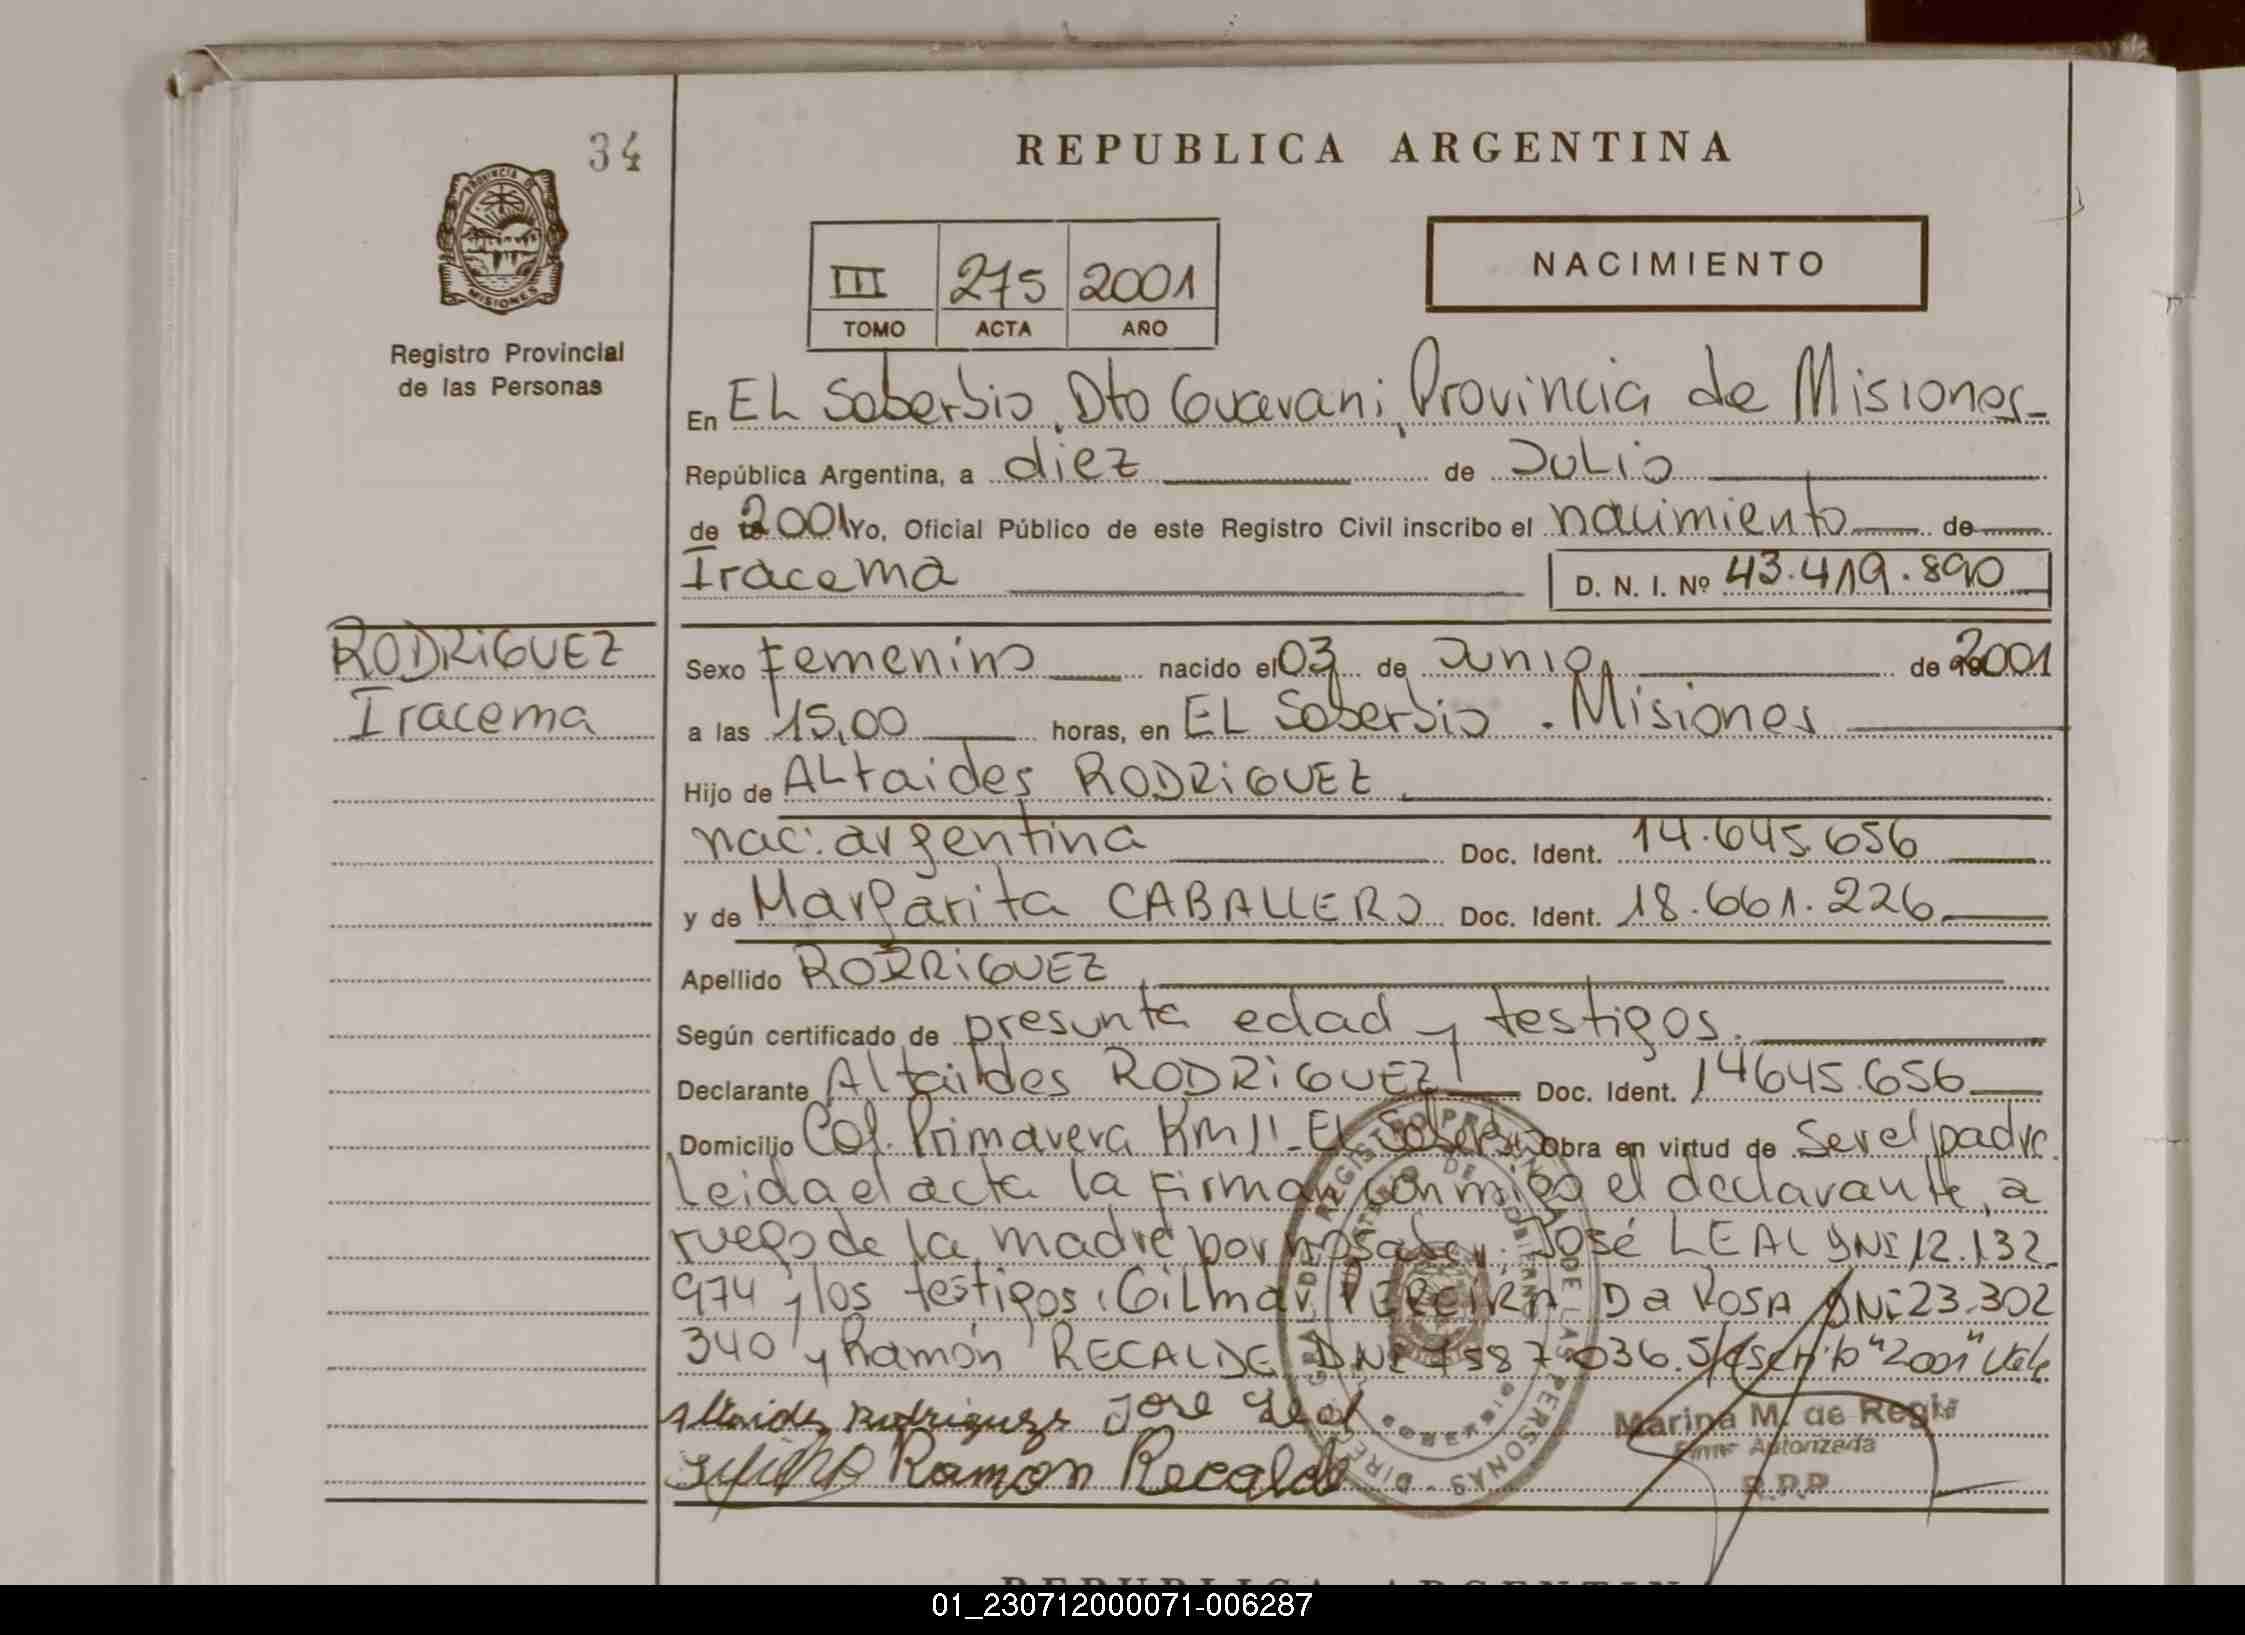 34
PROVINCIA DE
MISIONES
Registro Provincial
de las Personas
REPUBLICA ARGENTINA
III 275 2001
TOMO ACTA AÑO
NACIMIENTO
En EL Soberbio, Dto Guarani, Provincia de Misiones
República Argentina, a diez de Julio
de 2001 Yo, Oficial Público de este Registro Civil inscribo el nacimiento de
Iracema D. N. I. Nº 43.419.890
RODRIGUEZ
Iracema
Sexo Femenino nacido el 03 de Junio de 2001
a las 15,00 horas, en EL Soberbio . Misiones
Hijo de ALtaides RODRIGUEZ
nac: argentina Doc. Ident. 14.645.656
y de Margarita CABALLERO Doc. Ident. 18.661.226
Apellido RODRIGUEZ
Según certificado de presunta edad y testigos.
Declarante Altaides RODRIGUEZ Doc. Ident. 14645.656
Domicilio Col. Primavera Km 11 - EL Soberbio Obra en virtud de Ser el padre.
Leida el acta la firman conmigo el declarante, a
ruego de la madre por no saber: José LEAL DNI 12.132
974 y los testigos: Gilmar PEREIRA Da ROSA DNI 23.302
340 y Ramón RECALDE DNI 7587.036. S/escrito "2001" Vale
Altaides Rodriguez Jose Leal
Ramon Recalde
REGISTRO PROVINCIAL DE LAS PERSONAS
MINISTERIO DE GOBIERNO
Marina M. de Regis
Firma Autorizada
R.P.P
REPUBLICA ARGENTINA
01_230712000071-006287